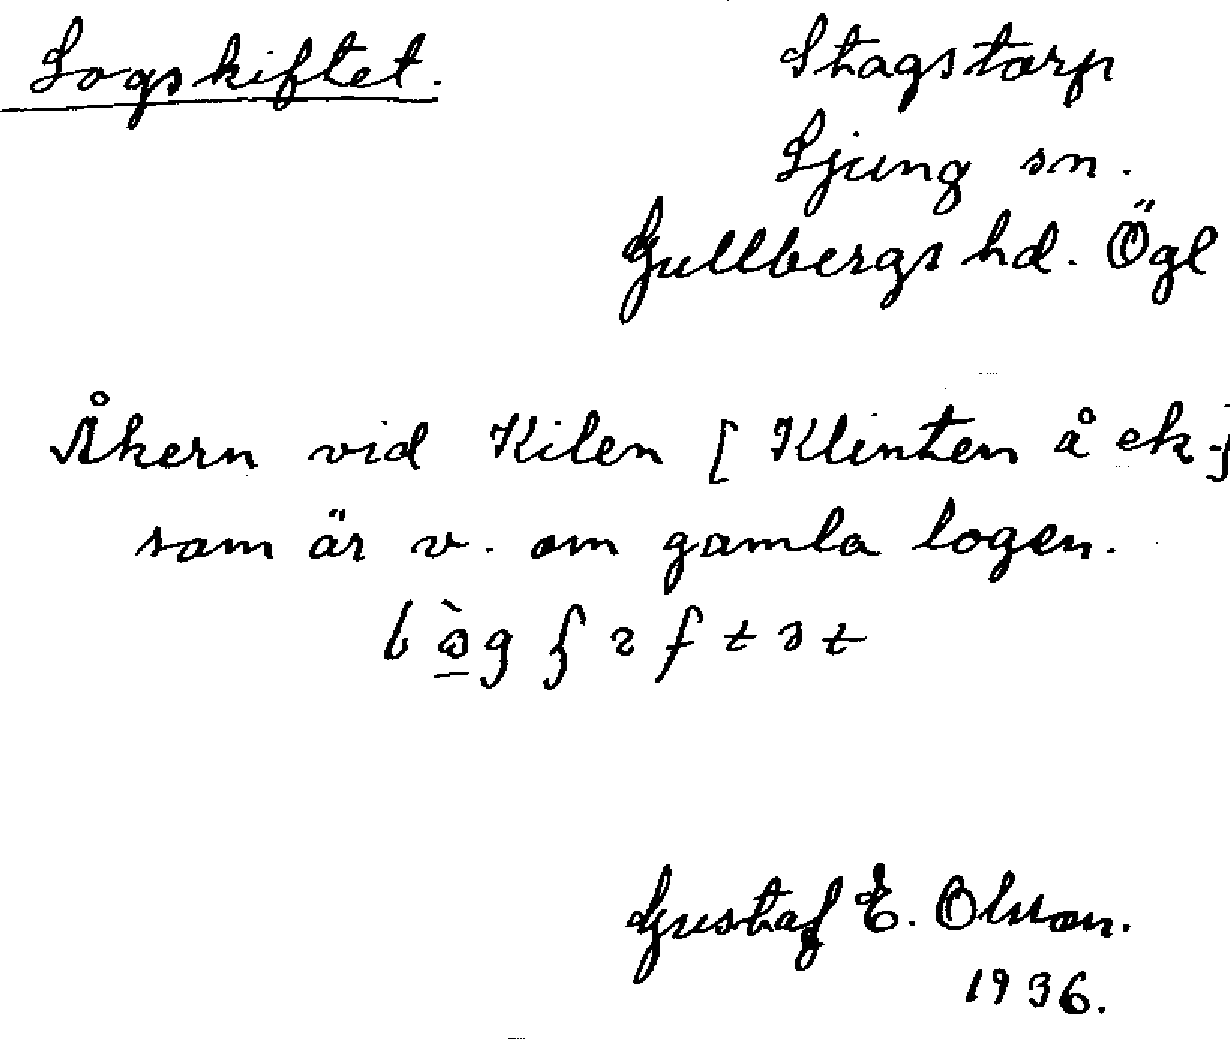 Logskiftet.
Stagstorp
Ljung sn.
Gullbergs hd. Ögl
Åkern vid Kilen [Klinten å ek.]
som är v. om gamla logen.
Gustaf E. Olsson.
1936.